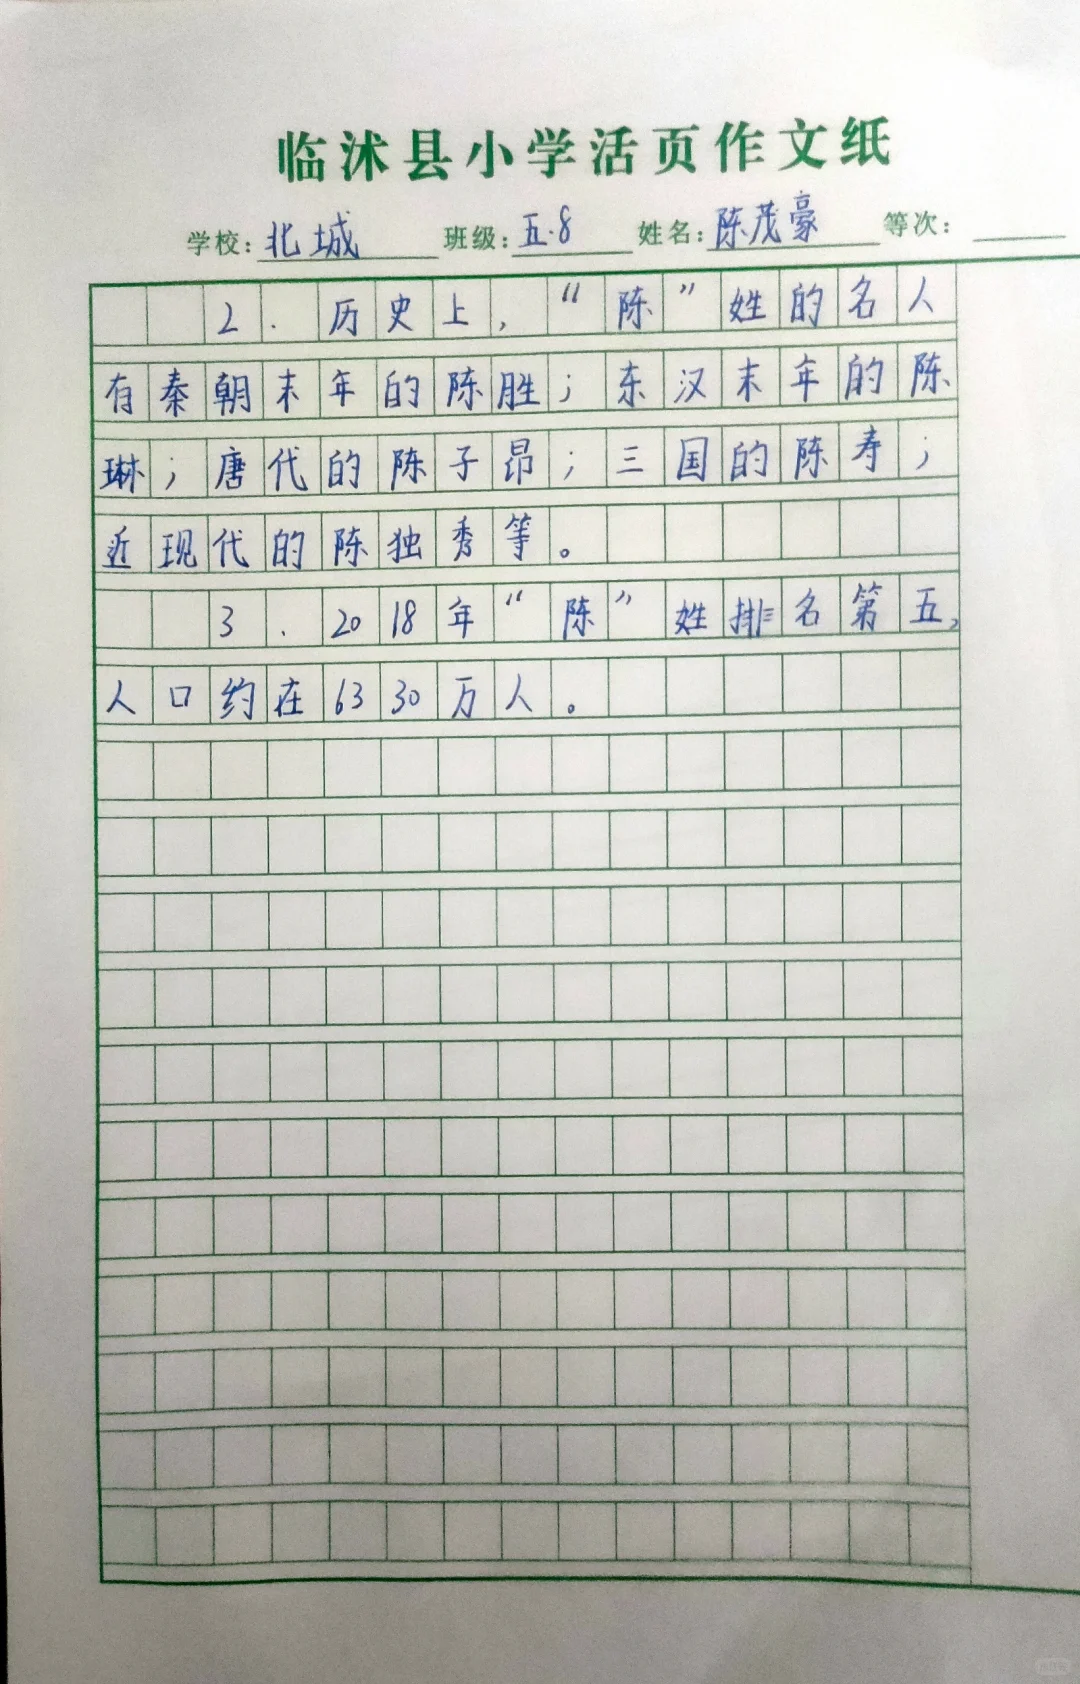 临沭县小学活页作文纸
学校: 北城 班级: 五.8 姓名: 陈茂豪 等次:
2. 历史上，“陈”姓的名人
有秦朝末年的陈胜；东汉末年的陈
琳；唐代的陈子昂；三国的陈寿；
近现代的陈独秀等。
3. 2018年“陈”姓排名第五，
人口约在6330万人。